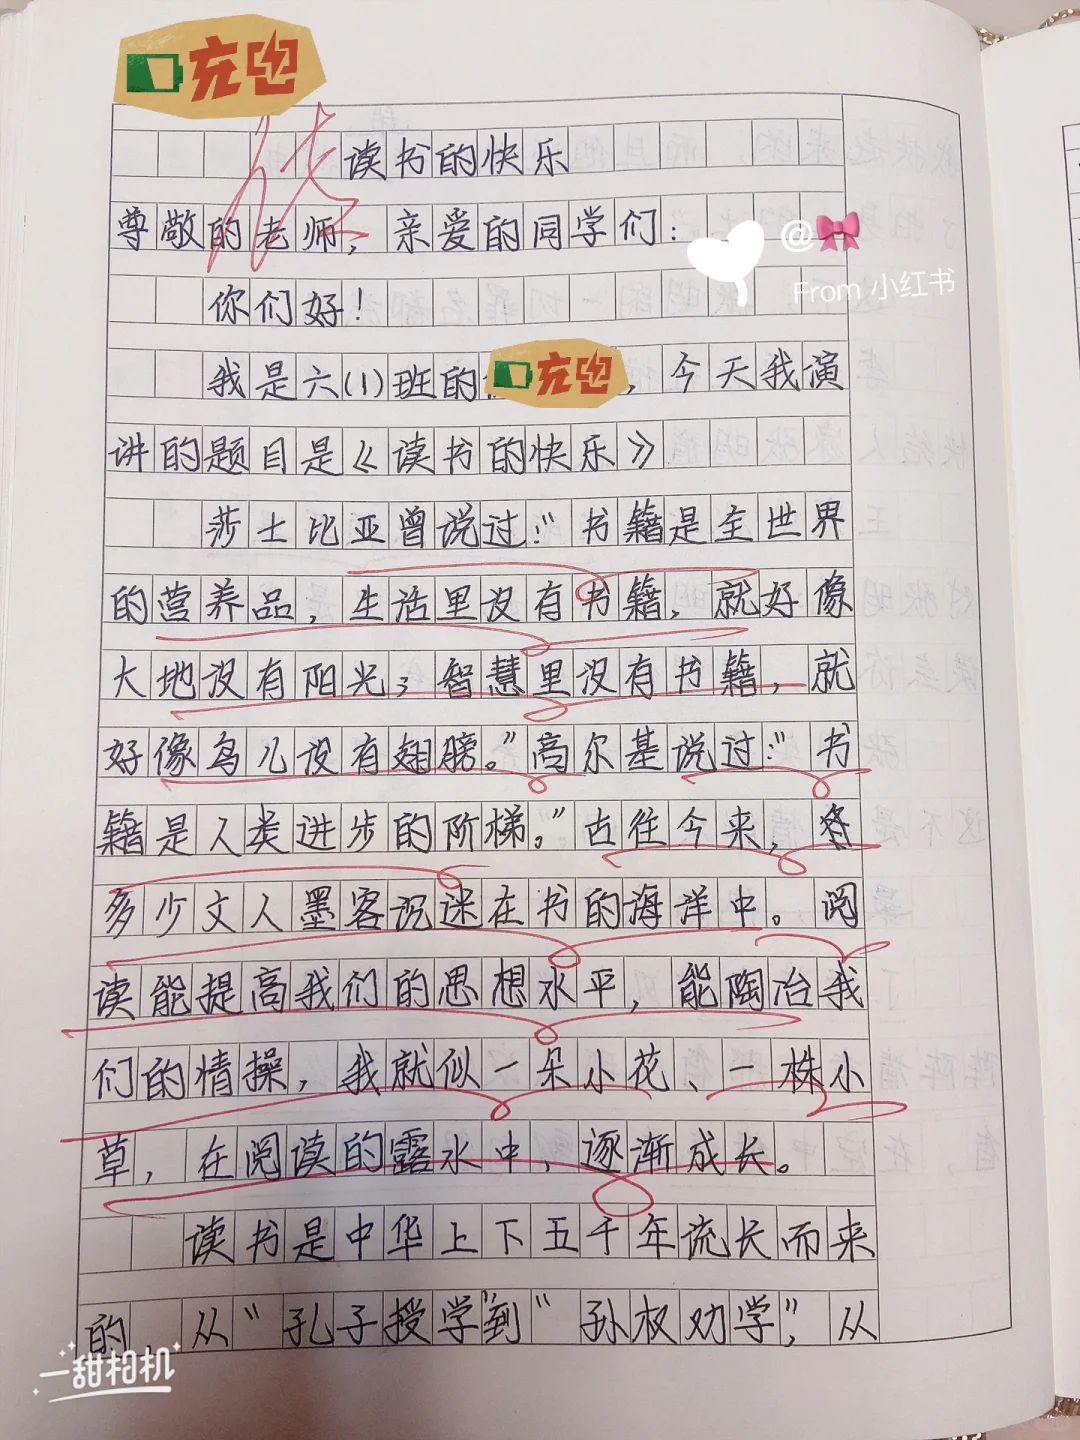 充电
优
读书的快乐
尊敬的老师，亲爱的同学们：
@
From 小红书
你们好！
我是六(1)班的 充电，今天我演
讲的题目是《读书的快乐》
莎士比亚曾说过：“书籍是全世界
的营养品，生活里没有书籍，就好像
大地没有阳光；智慧里没有书籍，就
好像鸟儿没有翅膀。”高尔基说过：“书
籍是人类进步的阶梯。”古往今来，
多少文人墨客沉迷在书的海洋中。阅
读能提高我们的思想水平，能陶冶我
们的情操，我就似一朵小花、一株小
草，在阅读的露水中，逐渐成长。
读书是中华上下五千年流长而来
的，从“孔子授学”到“孙权劝学”，从
一甜相机